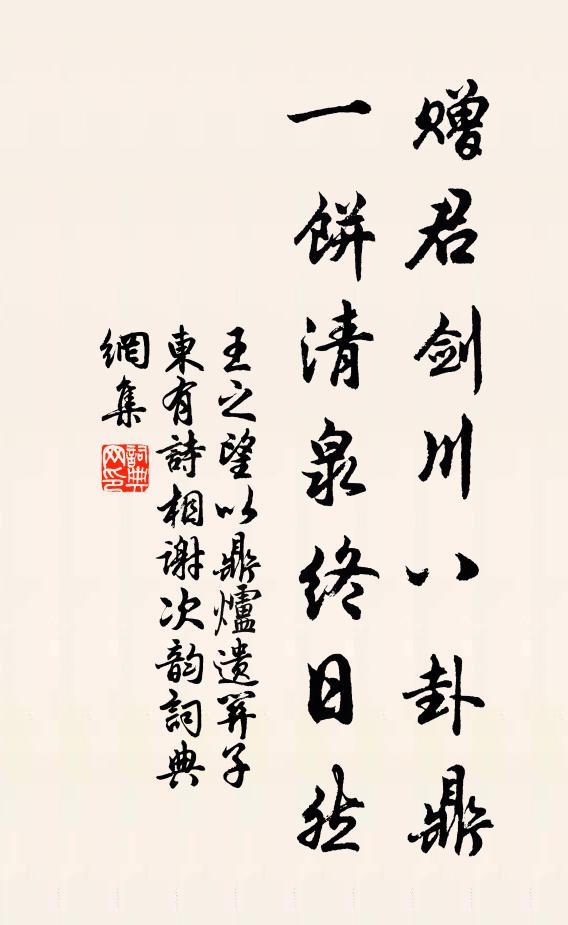 赠君剑川八卦鼎
一餅清泉终日然
王之望以鼎爐遺羿子
東有詩相谢次韵詞典
網集
詞典网印